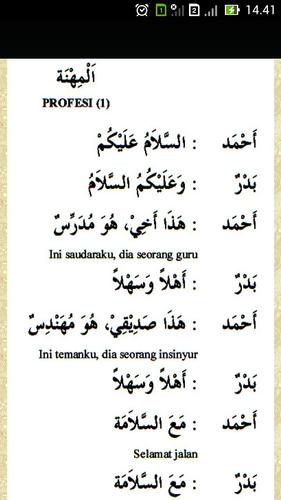 14.41
اَلْمِهْنَة
PROFESI (1)
أَحْمَد : السَّلاَمُ عَلَيْكُمْ
بَدْرٌ : وَعَلَيْكُمُ السَّلاَمُ
أَحْمَد : هَذَا أَخِيْ، هُوَ مُدَرِّسٌ
Ini saudaraku, dia seorang guru
بَدْرٌ : أَهْلاً وَسَهْلاً
أَحْمَد : هَذَا صَدِيْقِيْ، هُوَ مُهَنْدِسٌ
Ini temanku, dia seorang insinyur
بَدْرٌ : أَهْلاً وَسَهْلاً
أَحْمَد : مَعَ السَّلاَمَة
Selamat jalan
بَدْرٌ : مَعَ السَّلاَمَة